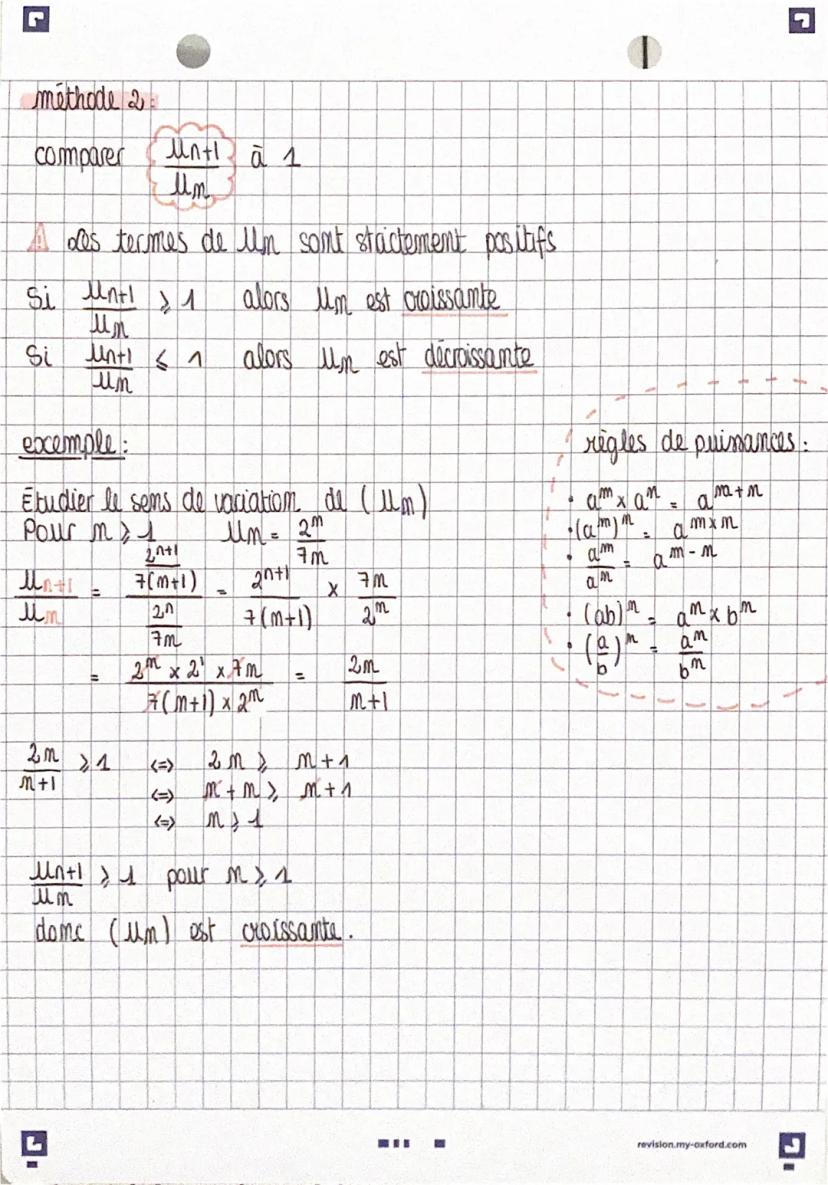 méthode 2:
comparer Un+1/Un à 1
⚠ Les termes de Un sont stictement positifs
Si Un+1/Un ⩾ 1 alors Un est croissante
Si Un+1/Un ⩽ 1 alors Un est décroissante
exemple:
Etudier le sens de variation de (Un)
Pour n ⩾ 1 Un = 2ⁿ/7n
Un+1/Un = (2ⁿ⁺¹/7(n+1))/(2ⁿ/7n) = 2ⁿ⁺¹/7(n+1) × 7n/2ⁿ
= (2ⁿ × 2¹ × 7n)/(7(n+1) × 2ⁿ) = 2n/n+1
2n/n+1 ⩾ 1 <=> 2n ⩾ n+1
<=> n+n ⩾ n+1
<=> n ⩾ 1
Un+1/Un ⩾ 1 pour n ⩾ 1
donc (Un) est croissante.
règles de puissances:
• aᵐ × aⁿ = aᵐ⁺ⁿ
• (aᵐ)ⁿ = aᵐˣⁿ
• aᵐ/aⁿ = aᵐ⁻ⁿ
• (ab)ⁿ = aⁿ × bⁿ
• (a/b)ⁿ = aⁿ/bⁿ
revision.my-oxford.com